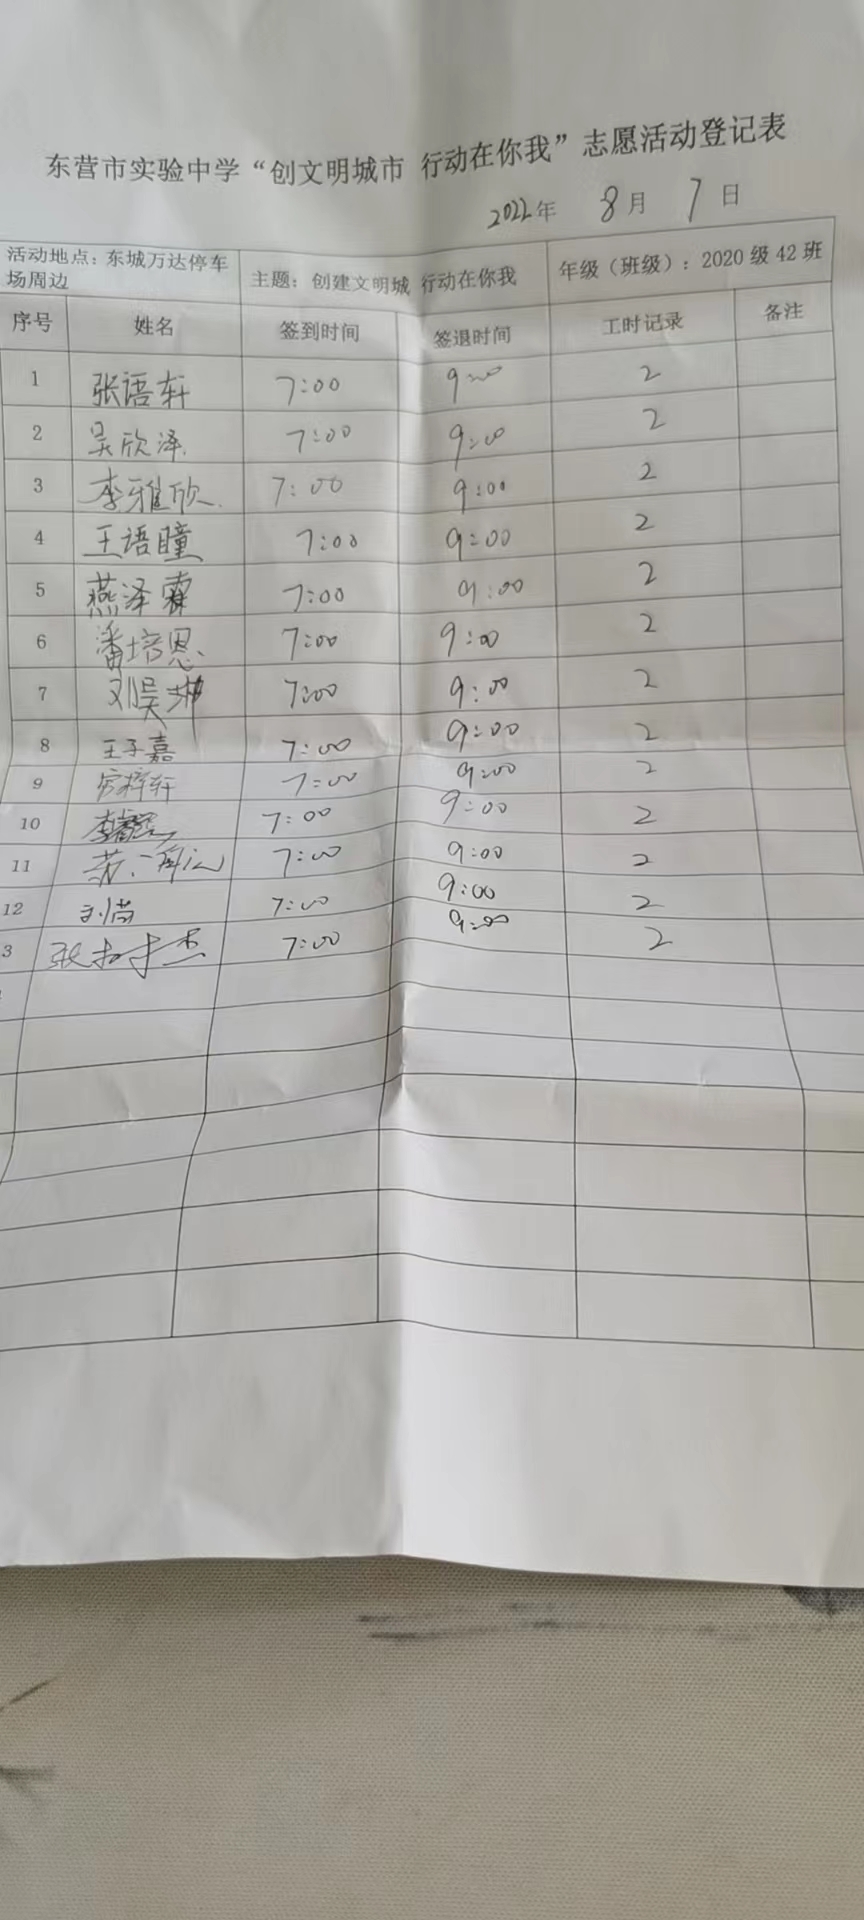 东营市实验中学“创文明城市 行动在你我”志愿活动登记表
2022年 8月 7日
活动地点：东城万达停车场周边 主题：创建文明城 行动在你我 年级（班级）：2020级42班
序号 姓名 签到时间 签退时间 工时记录 备注
1 张语轩 7:00 9:00 2
2 吴欣泽 7:00 9:00 2
3 李雅欣 7:00 9:00 2
4 王语瞳 7:00 9:00 2
5 燕泽霖 7:00 9:00 2
6 潘培恩 7:00 9:00 2
7 刘昊 7:00 9:00 2
8 王子嘉 7:00 9:00 2
9 梓轩 7:00 9:00 2
10 李 7:00 9:00 2
11 苏 7:00 9:00 2
12 刘尚 7:00 9:00 2
3 张 杰 7:00 9:00 2